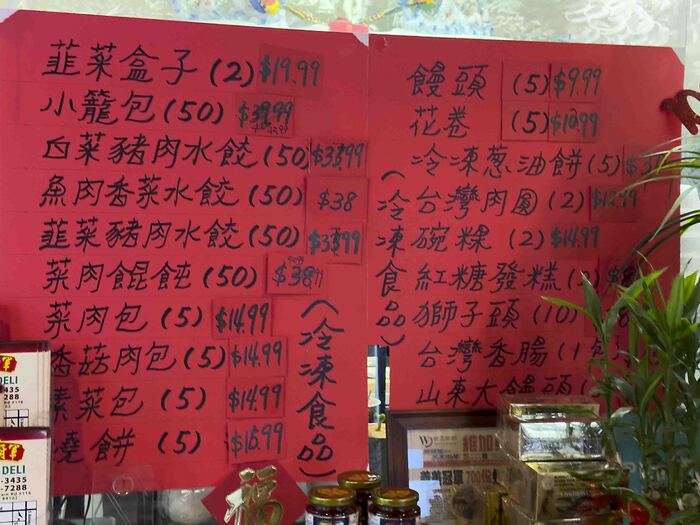 韮菜盒子(2) $19.99
小籠包(50) $39.99
白菜豬肉水餃(50) $33.99
魚肉香菜水餃(50) $38
韮菜豬肉水餃(50) $33.99
菜肉餛飩(50) $38
菜肉包(5) $14.99
香菇肉包(5) $14.99
素菜包(5) $14.99
燒餅(5) $15.99
(冷凍食品)
饅頭(5) $9.99
花卷(5) $10.99
冷凍葱油餅(5)
台灣肉圓(2) $12.99
碗粿(2) $14.99
紅糖發糕
獅子頭(10)
台灣香腸(1
山東大饅頭
(冷凍食品)
DELI
3435
7288
DELI
-3435
-7288
福